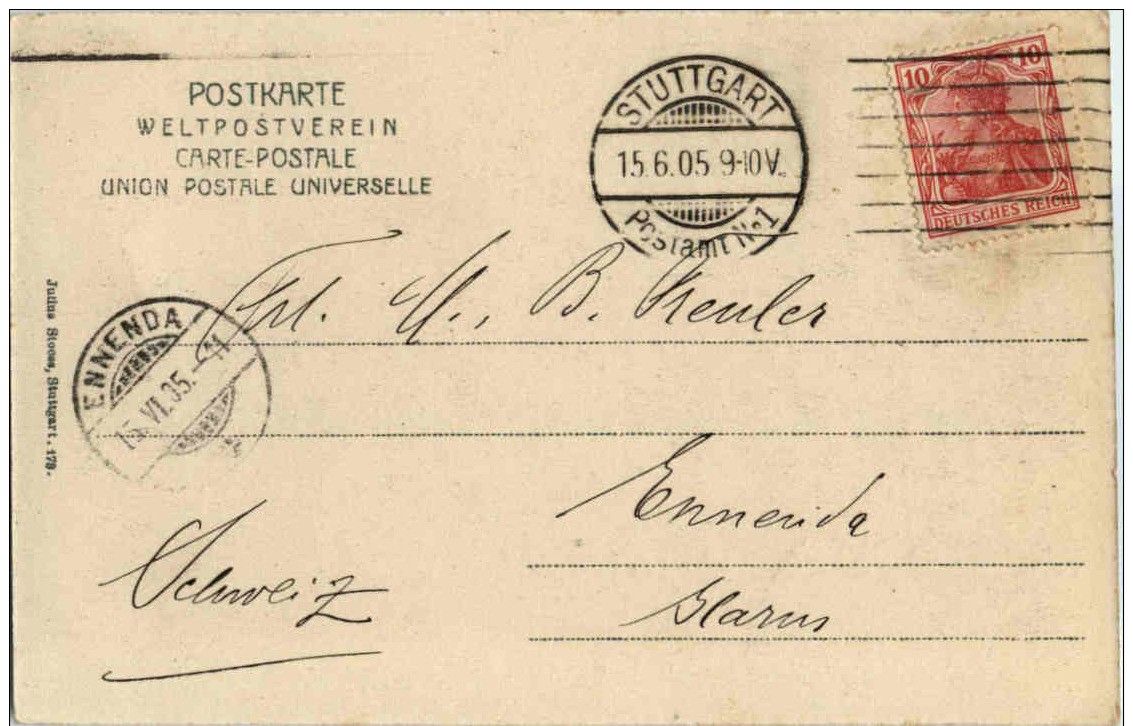 POSTKARTE
WELTPOSTVEREIN
CARTE-POSTALE
UNION POSTALE UNIVERSELLE
STUTTGART
15.6.05 9-10V.
Postamt No1
10 10
DEUTSCHES REICH
Frl. M. B. Keuler
ENNENDA
15.VI.05.-11
Ennenda
Schweiz
Glarus
Julius Stooss, Stuttgart. 179.